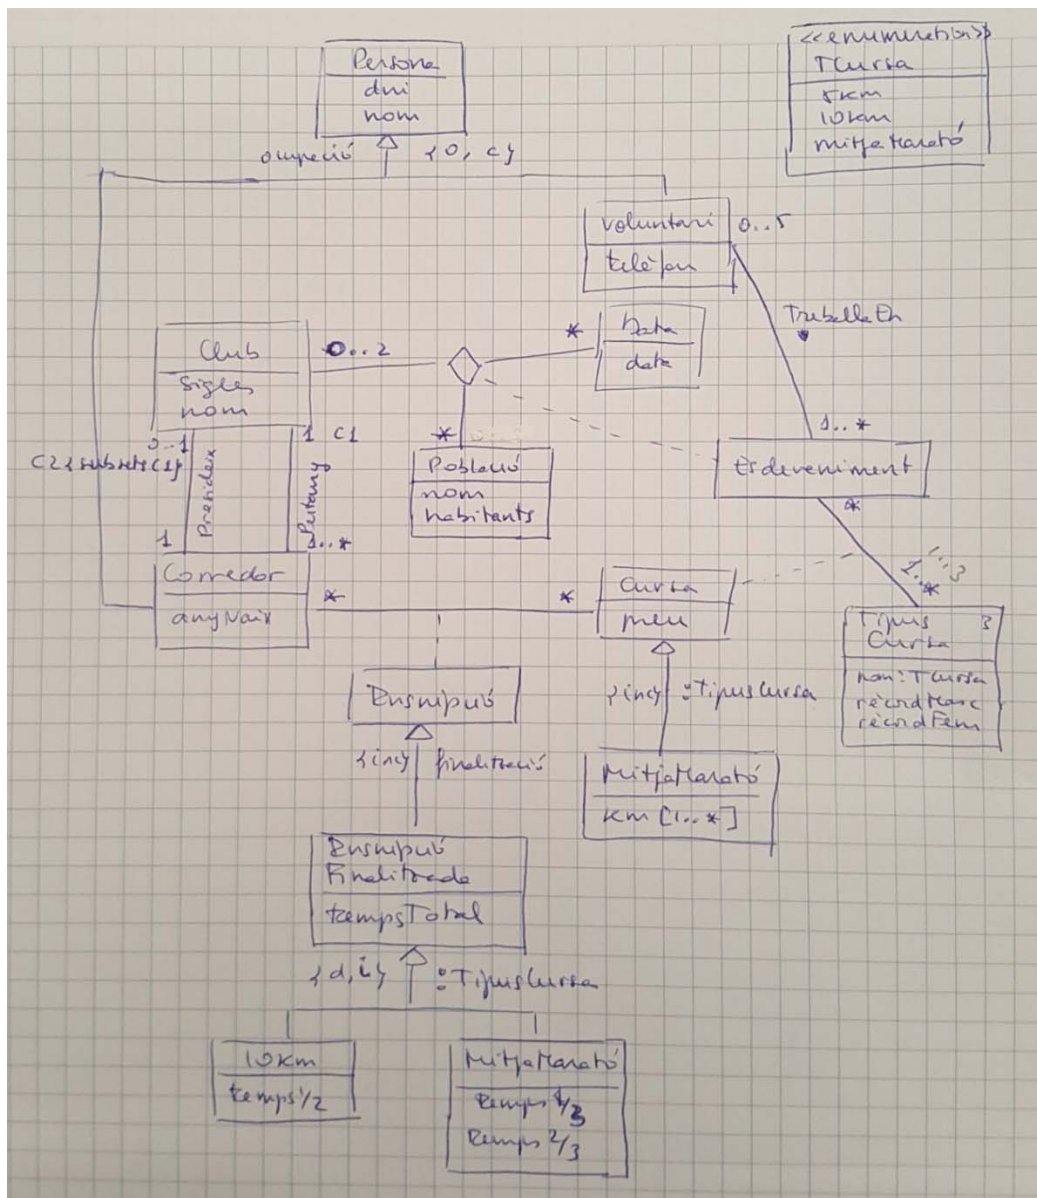 Persona
dni
nom
ocupació {O, c}
<<enumeration>>
TCursa
5km
10km
mitjaMarató
Voluntari 0..5
telèfon
TreballaEn
Club
sigles
nom
0..2
*
Data
data
*
Població
nom
habitants
1..*
Esdeveniment
0..1
1 C1
C2 {subsets C1}
Presideix
Pertany
1
1..*
Corredor
anyNaix
*
*
Cursa
preu
*
1..3
1..*
Tipus 3
Cursa
nom: TCursa
rècordMasc
rècordFem
Inscripció
{inc} finalització
{inc} :TipusCursa
MitjaMarató
km [1..*]
Inscripció
Finalitzada
tempsTotal
{d, i} :TipusCursa
10km
temps1/2
MitjaMarató
temps 1/3
temps 2/3